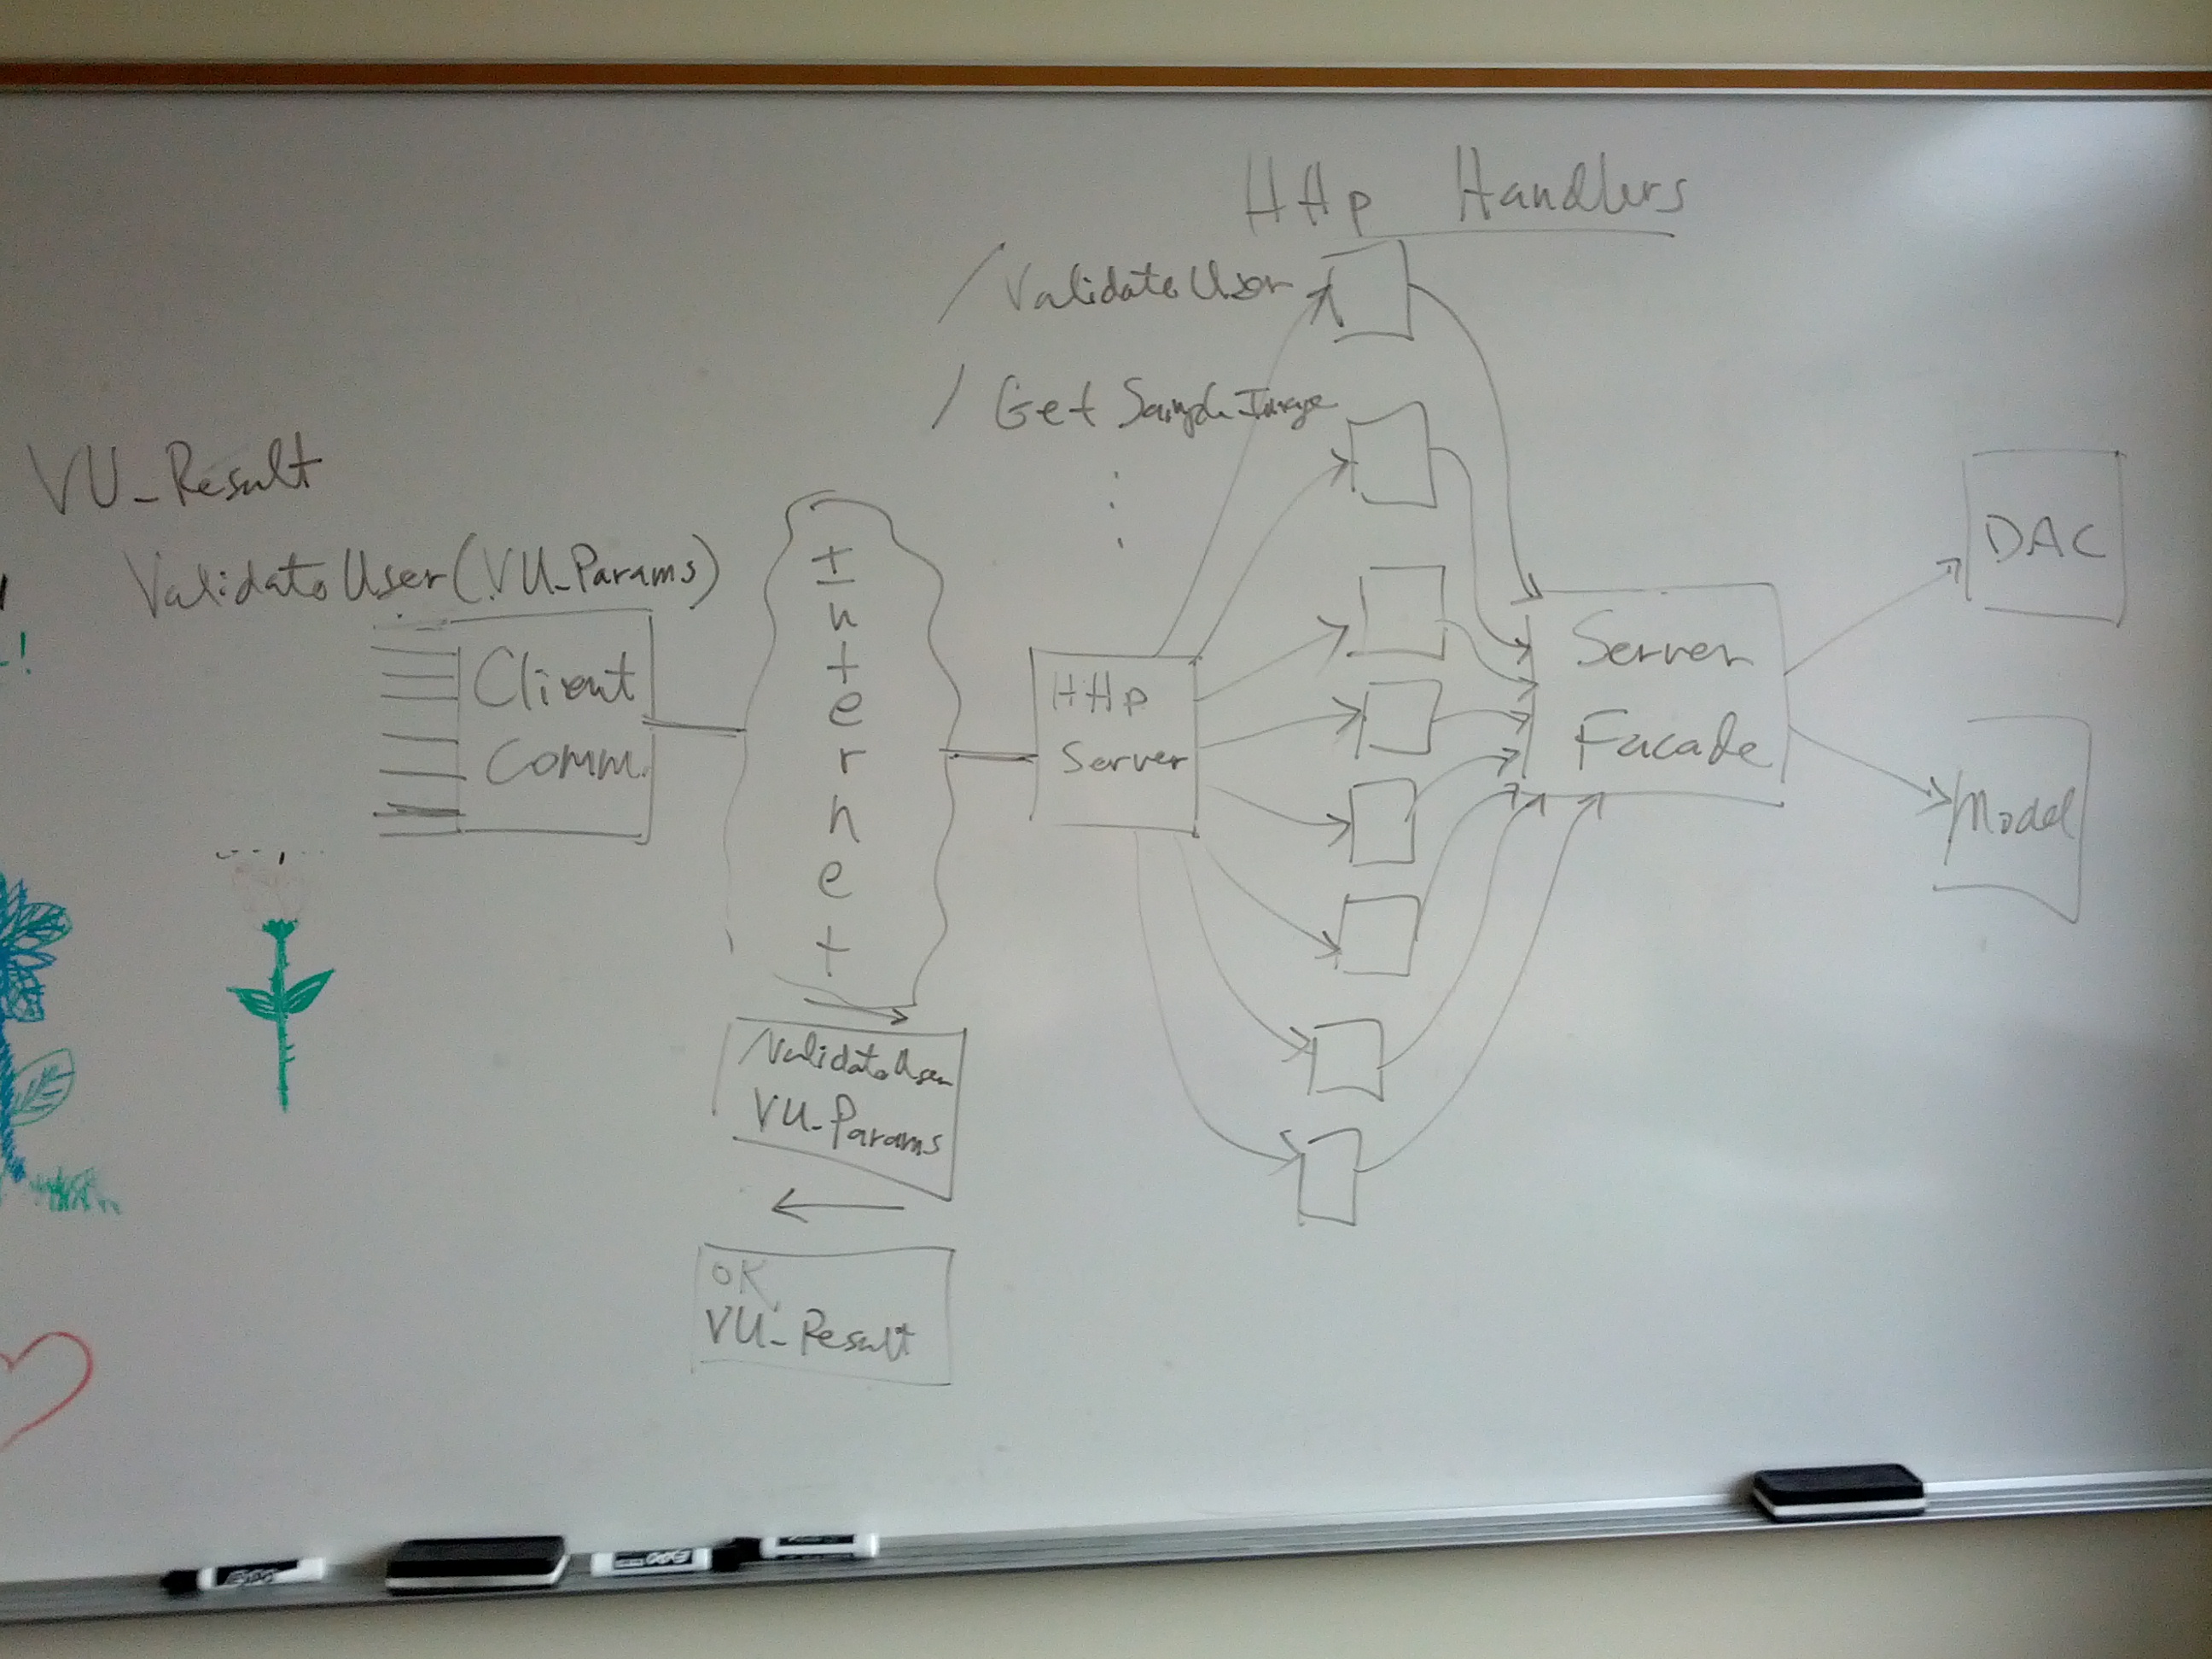 Http Handlers
/ValidateUser
/GetSampleImage
VU_Result
ValidateUser(VU_Params)
Client
Comm.
Internet
Http
Server
Server
Facade
DAC
Model
/ValidateUser
VU_Params
OK
VU_Result